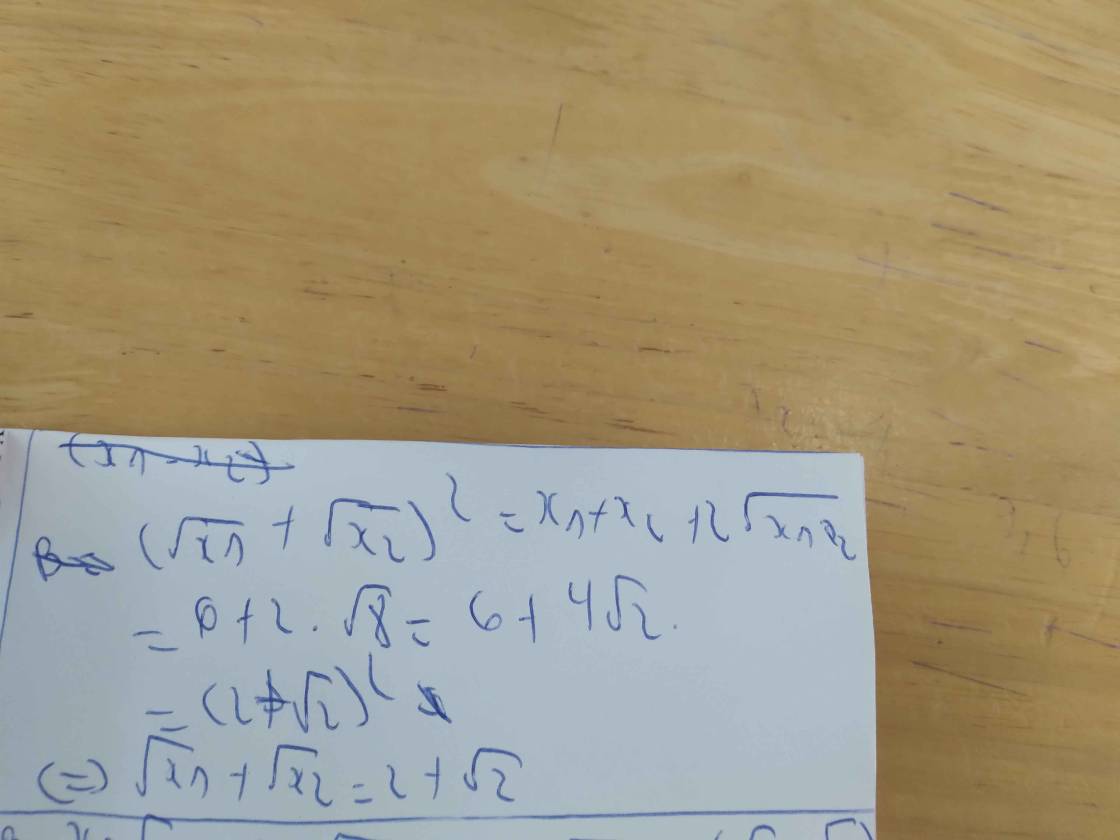 (x1 - x2)
(√x1 + √x2)² = x1 + x2 + 2√x1x2
= 6 + 2 . √8 = 6 + 4√2.
= (2 + √2)²
(=) √x1 + √x2 = 2 + √2